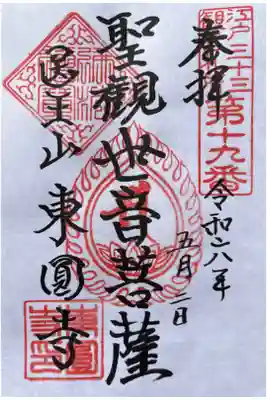 江戸三十三
観音
第十九番
奉拝
令和六年
五月二日
聖観世音菩薩
医王山 東圓寺